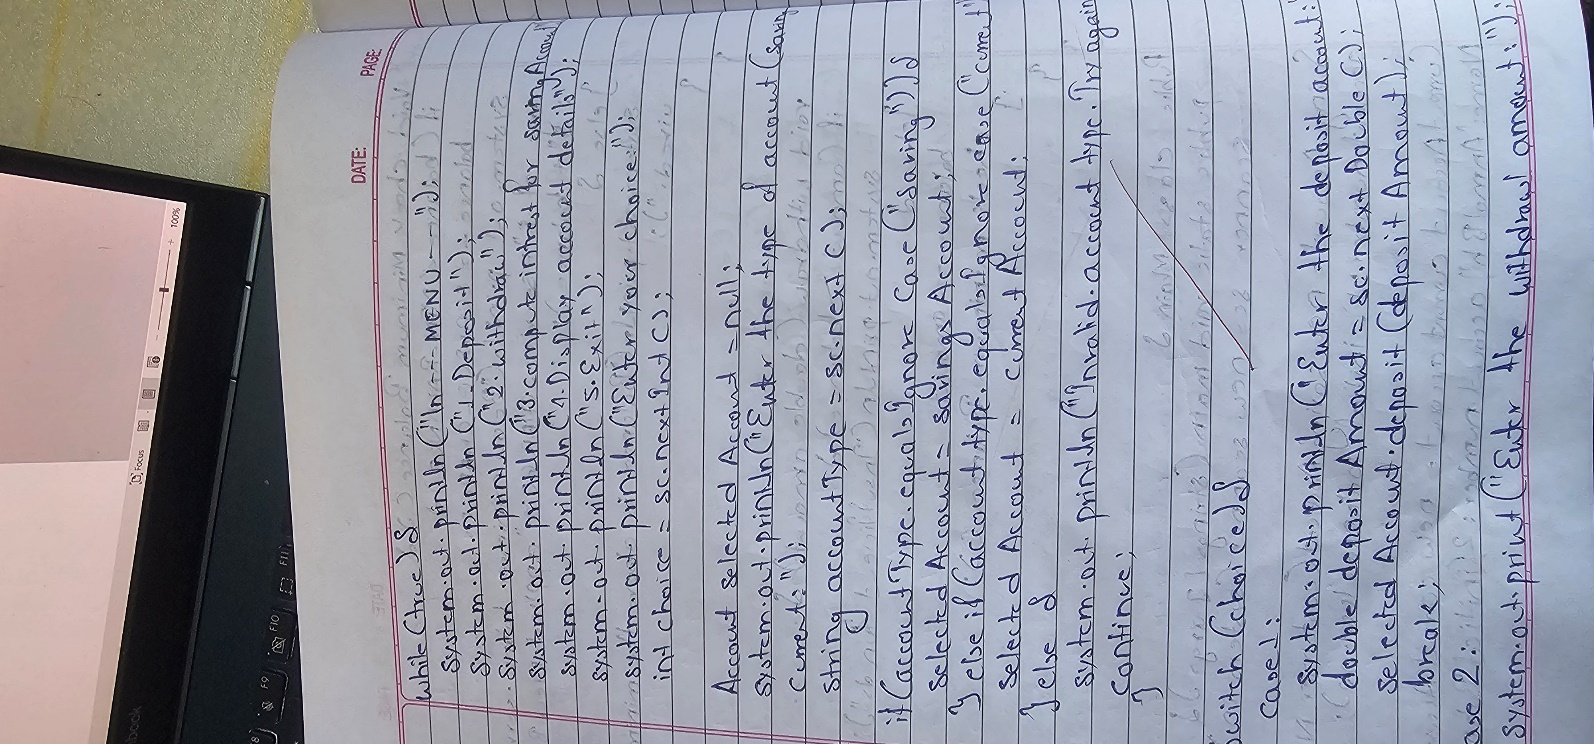 DATE:
PAGE:
while (true) {
System.out.println("\n--- MENU ---");
System.out.println("1.Deposit");
System.out.println("2 withdraw");
System.out.println("3.compute intrest for saving Account
System.out println("4.Display account details");
System.out println("5.Exit");
System.out println("Enter your choice:");
int choice = sc.nextInt();
Account selected Account = null;
System.out.println("Enter the type of account (saving
current:");
String accountType = sc.next();
if (accountType.equalsIgnore Case("saving")){
selected Account = savings Account;
} else if (account type.equalsIgnore case ("current"
selected Account = current Account;
} else {
System.out println("Invalid.account type.Try again
continue;
}
switch (choice){
case1:
System.out.println("Enter the deposit account:"
double deposit Amount = sc.next Double ();
selected Account.deposit (deposit Amount);
break;
ase 2:
System.out.print("Enter the withdrawl amount:");
100%
Focus
F9
F10
F11
book